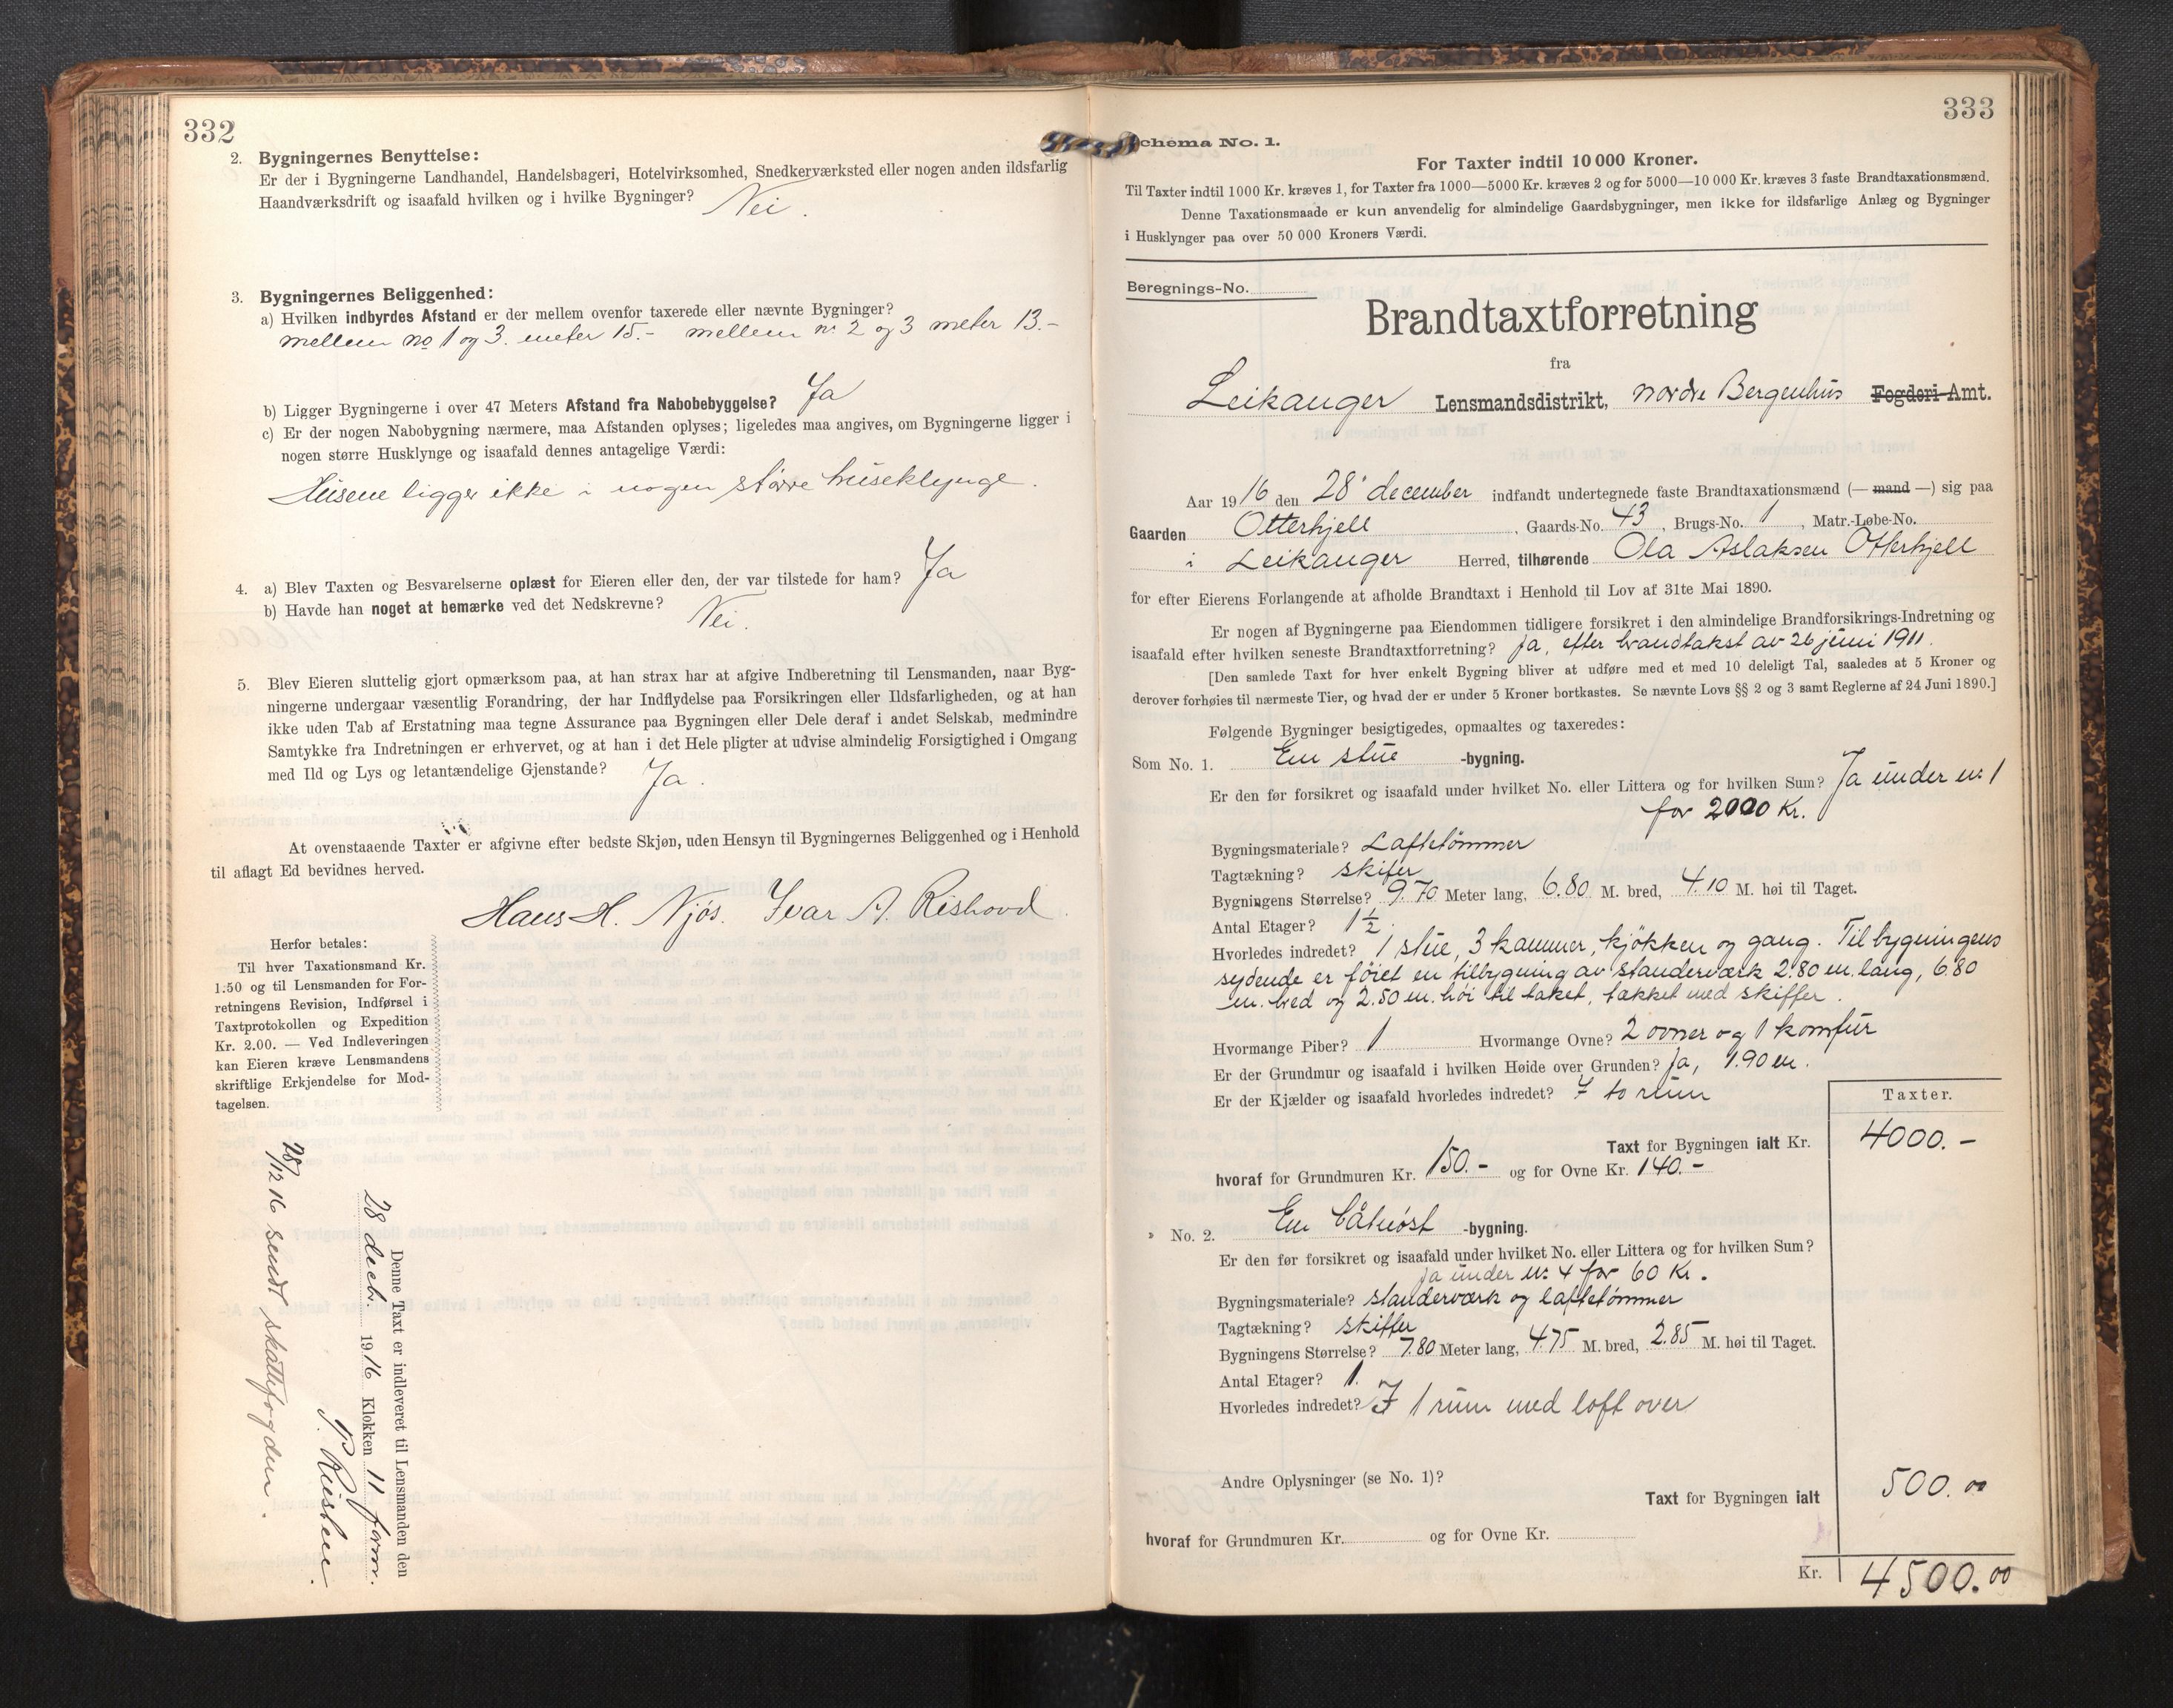 332
2. Bygningernes Benyttelse:
Er der i Bygningerne Landhandel, Handelsbageri, Hotelvirksomhed, Snedkerværksted eller nogen anden ildsfarlig
Haandværksdrift og isaafald hvilken og i hvilke Bygninger? Nei.
3. Bygningernes Beliggenhed:
a) Hvilken indbyrdes Afstand er der mellem ovenfor taxerede eller nævnte Bygninger?
mellem no 1 og 3. meter 15.- mellem nr. 2 og 3 meter 13.-
b) Ligger Bygningerne i over 47 Meters Afstand fra Nabobebyggelse? Ja
c) Er der nogen Nabobygning nærmere, maa Afstanden oplyses; ligeledes maa angives, om Bygningerne ligger i
nogen større Husklynge og isaafald dennes antagelige Værdi:
Husene ligger ikke i nogen större huseklynge.
4. a) Blev Taxten og Besvarelserne oplæst for Eieren eller den, der var tilstede for ham? Ja
b) Havde han noget at bemærke ved det Nedskrevne? Nei.
5. Blev Eieren sluttelig gjort opmærksom paa, at han strax har at afgive Indberetning til Lensmanden, naar Byg-
ningerne undergaar væsentlig Forandring, der har Indflydelse paa Forsikringen eller Ildsfarligheden, og at han
ikke uden Tab af Erstatning maa tegne Assurance paa Bygningen eller Dele deraf i andet Selskab, medmindre
Samtykke fra Indretningen er erhvervet, og at han i det Hele pligter at udvise almindelig Forsigtighed i Omgang
med Ild og Lys og letantændelige Gjenstande? Ja.
At ovenstaaende Taxter er afgivne efter bedste Skjøn, uden Hensyn til Bygningernes Beliggenhed og i Henhold
til aflagt Ed bevidnes herved.
Hans H. Njøs. Ivar A. Rishovd.
Herfor betales:
Til hver Taxationsmand Kr.
1.50 og til Lensmanden for For-
retningens Revision, Indførsel i
Taxtprotokollen og Expedition
Kr. 2.00. — Ved Indleveringen
kan Eieren kræve Lensmandens
skriftlige Erkjendelse for Mod-
tagelsen.
Denne Taxt er indleveret til Lensmanden den
28 decbr. 1916 Klokken 11 form.
28/12 16 sendt skattefogden.
333
Schema No. 1.
For Taxter indtil 10 000 Kroner.
Til Taxter indtil 1000 Kr. kræves 1, for Taxter fra 1000—5000 Kr. kræves 2 og for 5000—10 000 Kr. kræves 3 faste Brandtaxationsmænd.
Denne Taxationsmaade er kun anvendelig for almindelige Gaardsbygninger, men ikke for ildsfarlige Anlæg og Bygninger
i Husklynger paa over 50 000 Kroners Værdi.
Beregnings-No.
Brandtaxtforretning
fra
Leikanger Lensmandsdistrikt, Nordre Bergenhus Fogderi-Amt.
Aar 1916 den 28' december indfandt undertegnede faste Brandtaxationsmænd (— mand —) sig paa
Gaarden Otterhjell, Gaards-No. 43, Brugs-No. 1, Matr.-Løbe-No.
i Leikanger Herred, tilhørende Ola Aslaksen Otterhjell
for efter Eierens Forlangende at afholde Brandtaxt i Henhold til Lov af 31te Mai 1890.
Er nogen af Bygningerne paa Eiendommen tidligere forsikret i den almindelige Brandforsikrings-Indretning og
isaafald efter hvilken seneste Brandtaxtforretning? Ja, efter brandtakst av 26 juni 1911.
[Den samlede Taxt for hver enkelt Bygning bliver at udføre med et med 10 deleligt Tal, saaledes at 5 Kroner og
derover forhøies til nærmeste Tier, og hvad der er under 5 Kroner bortkastes. Se nævnte Lovs §§ 2 og 3 samt Reglerne af 24 Juni 1890.]
Følgende Bygninger besigtigedes, opmaaltes og taxeredes:
Som No. 1. En stue -bygning.
Er den før forsikret og isaafald under hvilket No. eller Littera og for hvilken Sum? Ja under nr. 1
for 2000 Kr.
Bygningsmateriale? Laftetömmer
Tagtækning? skifer
Bygningens Størrelse? 9.70 Meter lang, 6.80 M. bred, 4.10 M. høi til Taget.
Antal Etager? 1½.
Hvorledes indredet? 1 stue, 3 kammer, kjökken og gang. Til bygningens
sydende er föiet en tilbygning av standerværk 2.80 m. lang, 6.80
m. bred og 2.50 m. höi til taket, tækket med skiffer.
Hvormange Piber? 1 Hvormange Ovne? 2 ovner og 1 komfur
Er der Grundmur og isaafald i hvilken Høide over Grunden? Ja, 1.90 m.
Er der Kjælder og isaafald hvorledes indredet? I to rum
Taxter.
Taxt for Bygningen ialt Kr. 4000.-
hvoraf for Grundmuren Kr. 150.- og for Ovne Kr. 140.-
» No. 2. En båtnöst -bygning.
Er den før forsikret og isaafald under hvilket No. eller Littera og for hvilken Sum?
Ja under nr. 4 for 60 Kr.
Bygningsmateriale? standerværk og laftetömmer
Tagtækning? skiffer
Bygningens Størrelse? 7.80 Meter lang, 4.75 M. bred, 2.85 M. høi til Taget.
Antal Etager? 1.
Hvorledes indredet? I 1 rum med loft over
Andre Oplysninger (se No. 1)?
Taxt for Bygningen ialt 500.00
hvoraf for Grundmuren Kr. og for Ovne Kr.
Kr. 4500.00